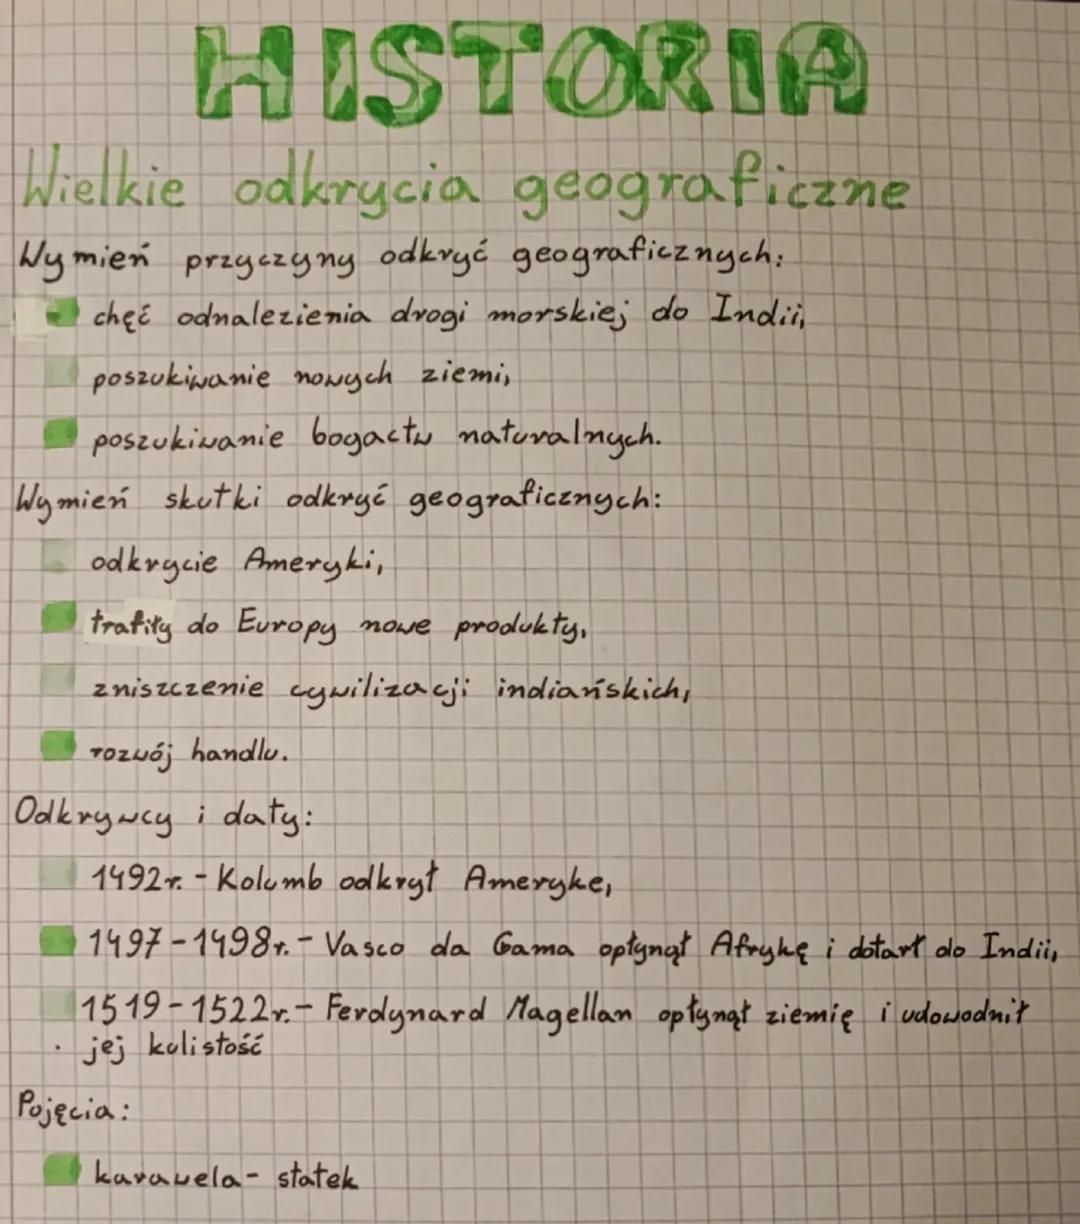 HISTORIA
Wielkie odkrycia geograficzne
Wymień przyczyny odkryć geograficznych:
chęć odnalezienia drogi morskiej do Indii,
poszukiwanie nowych ziemi,
poszukiwanie bogactw naturalnych.
Wymień skutki odkryć geograficznych:
odkrycie Ameryki,
trafiły do Europy nowe produkty,
zniszczenie cywilizacji indiańskich,
rozwój handlu.
Odkrywcy i daty:
1492r. - Kolumb odkrył Ameryke,
1497-1498r. - Vasco da Gama opłynął Afrykę i dotarł do Indii,
1519-1522r. - Ferdynard Magellan opłynął ziemię i udowodnił
jej kulistość
Pojęcia:
karawela - statek